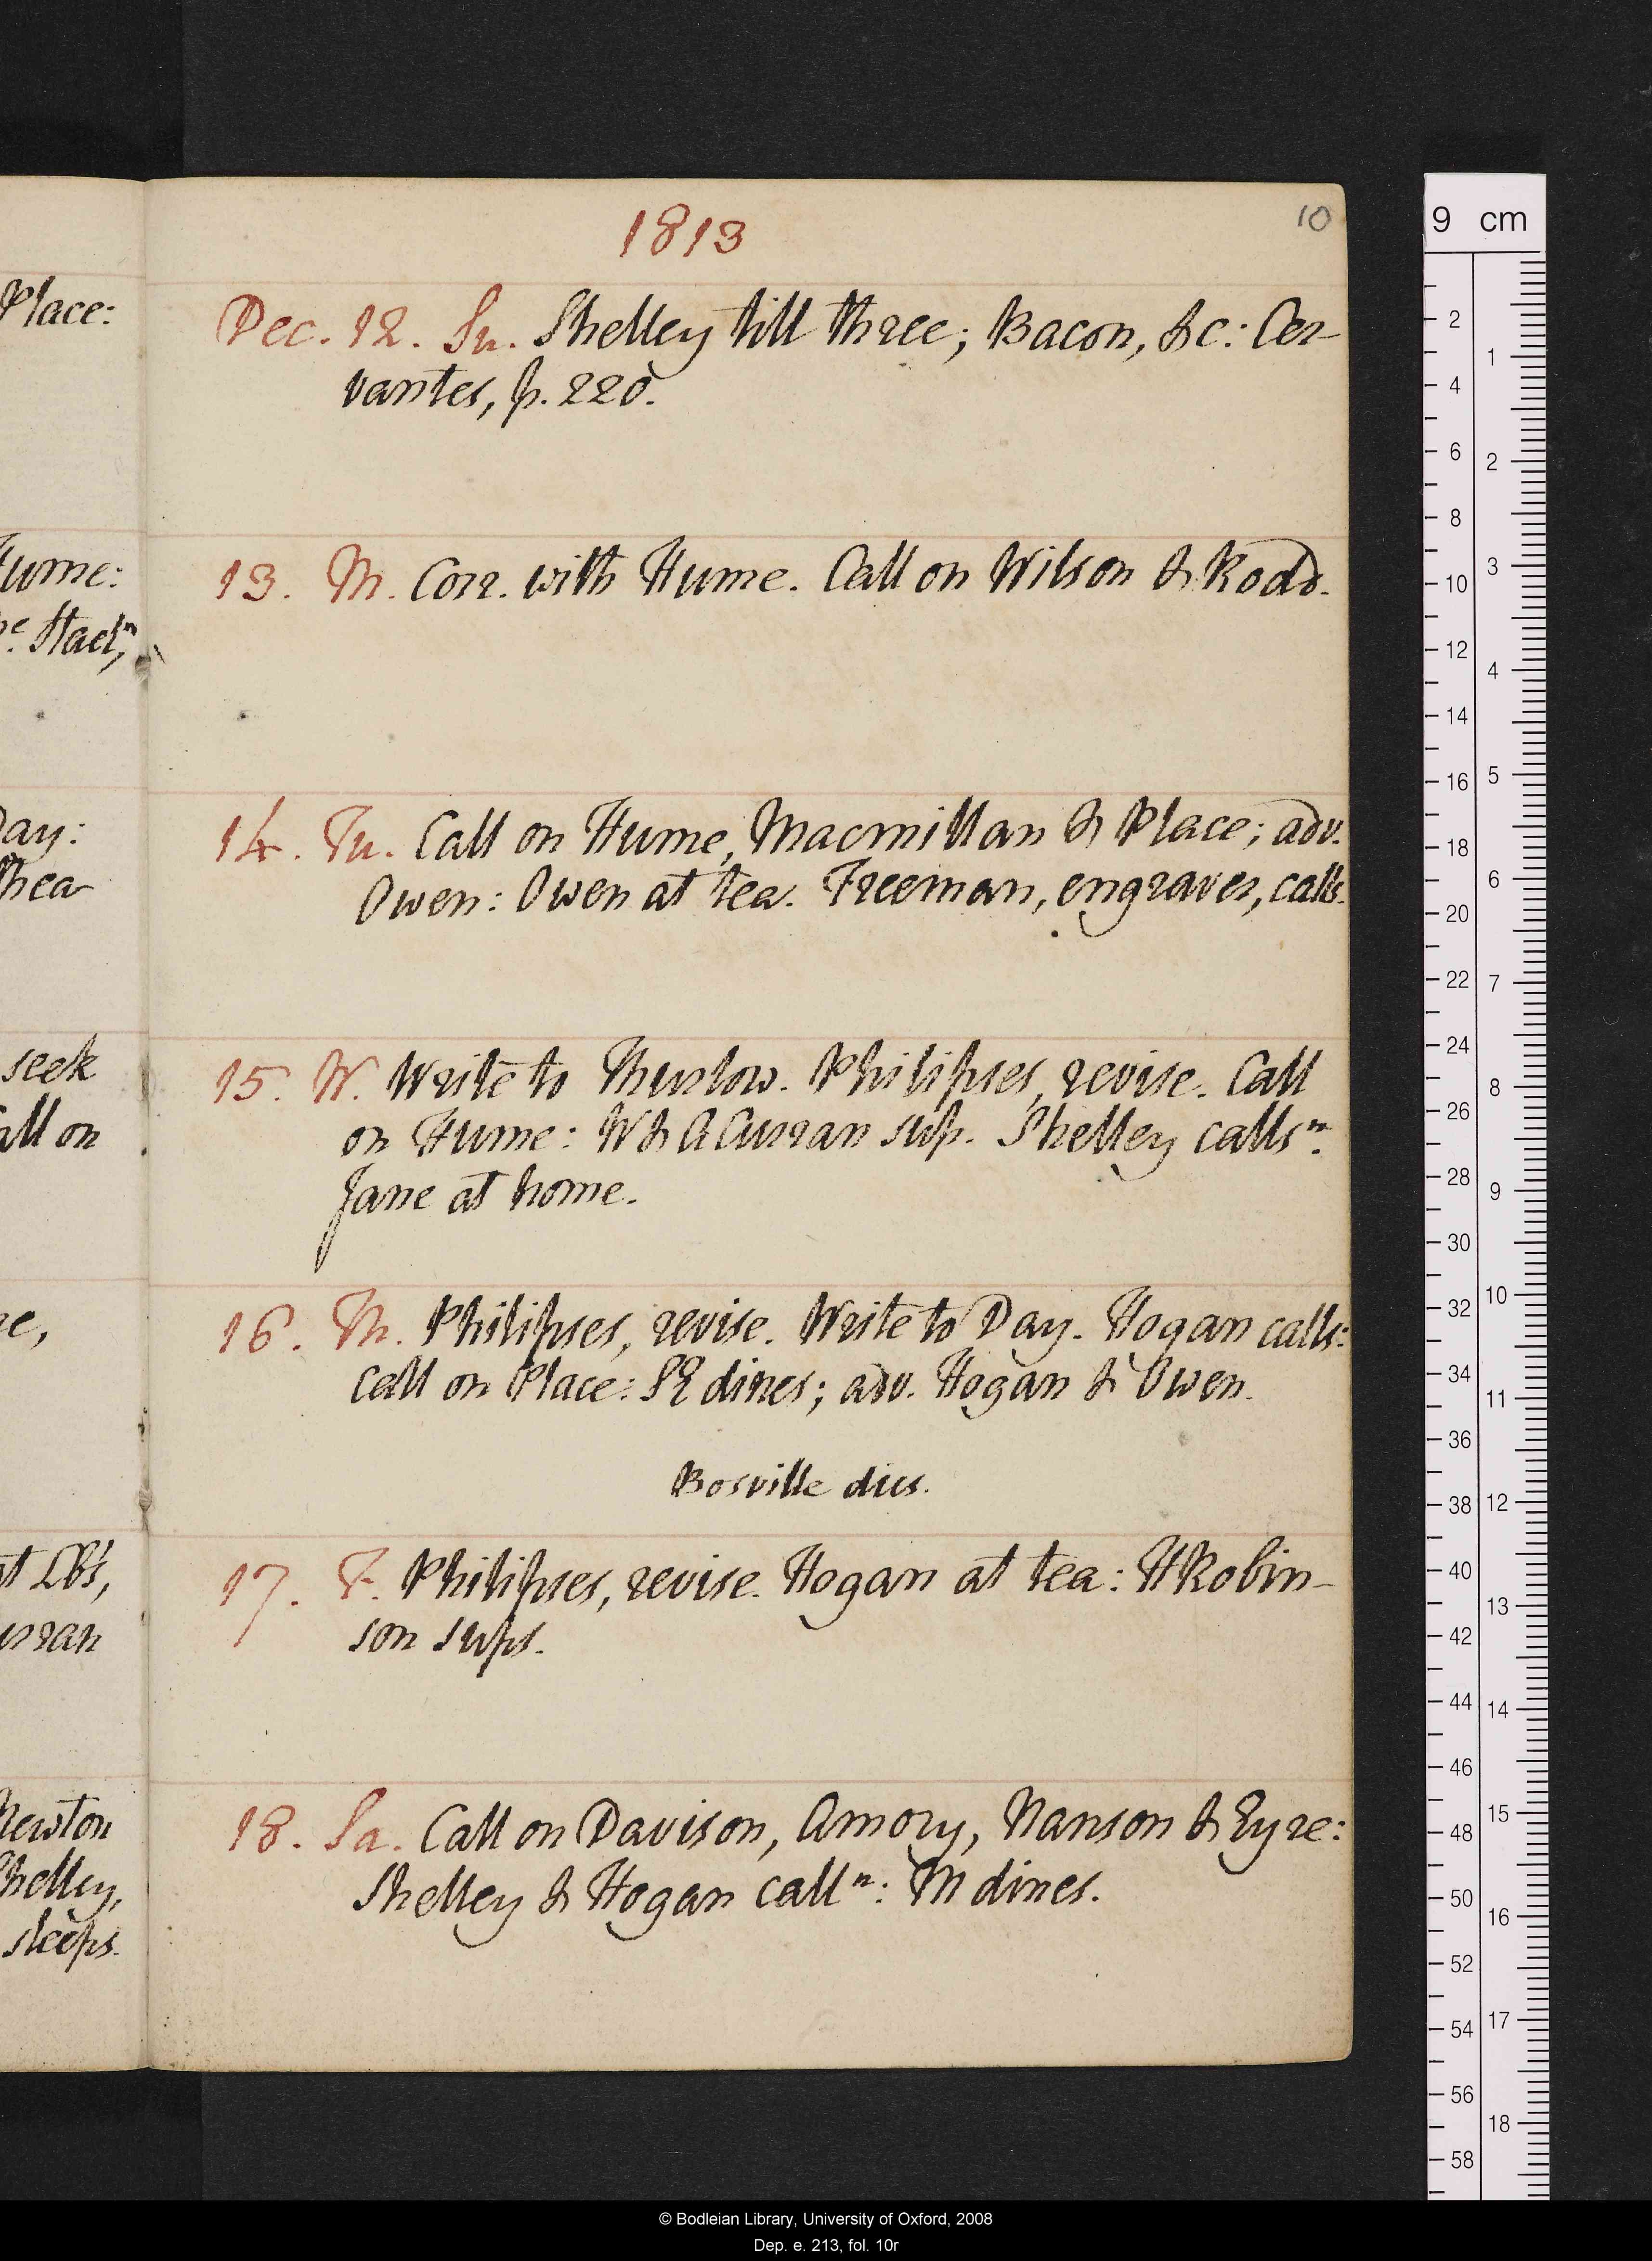 1813
10
Dec. 12. Su. Shelley till three; Bacon, &c: Cer-
vantes, p. 220.
13. M. Corr. with Hume. Call on Wilson & Rodd.
14. Tu. Call on Hume, Macmillan & Place; adv.
Owen: Owen at tea. Freeman, engraver, calls.
15. W. Write to Thurlow. Philipses, revise. Call
on Hume: W & A Curran sup. Shelley calls n.
Jane at home.
16. Th. Philipses, revise. Write to Day. Hogan calls:
call on Place: PE dines; adv. Hogan & Owen.
Bosville dies.
17. F. Philipses, revise. Hogan at tea: H Robin-
son sups.
18. Sa. Call on Davison, Amory, Nanson & Eyre:
Shelley & Hogan call n: M dines.
Place:
Hume:
Day:
seek
call on
Newton
Shelley,
sleeps.
9 cm
2
4
6
8
10
12
14
16
18
20
22
24
26
28
30
32
34
36
38
40
42
44
46
48
50
52
54
56
58
1
2
3
4
5
6
7
8
9
10
11
12
13
14
15
16
17
18
© Bodleian Library, University of Oxford, 2008
Dep. e. 213, fol. 10r